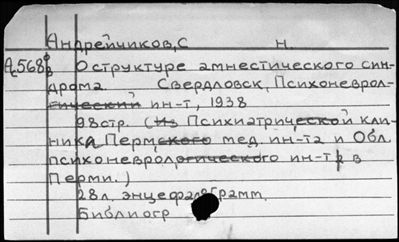 Андрейчиков, С Н.
А568 О структуре амнестического син-
дрома Свердловск, Психоневрол-
огический ин-т, 1938
98стр. (Из Психиатрической кли-
ника Пермского мед. ин-та и Обл.
психоневрологического ин-т в
Перми.)
28л. энцефалограмм.
Библиогр